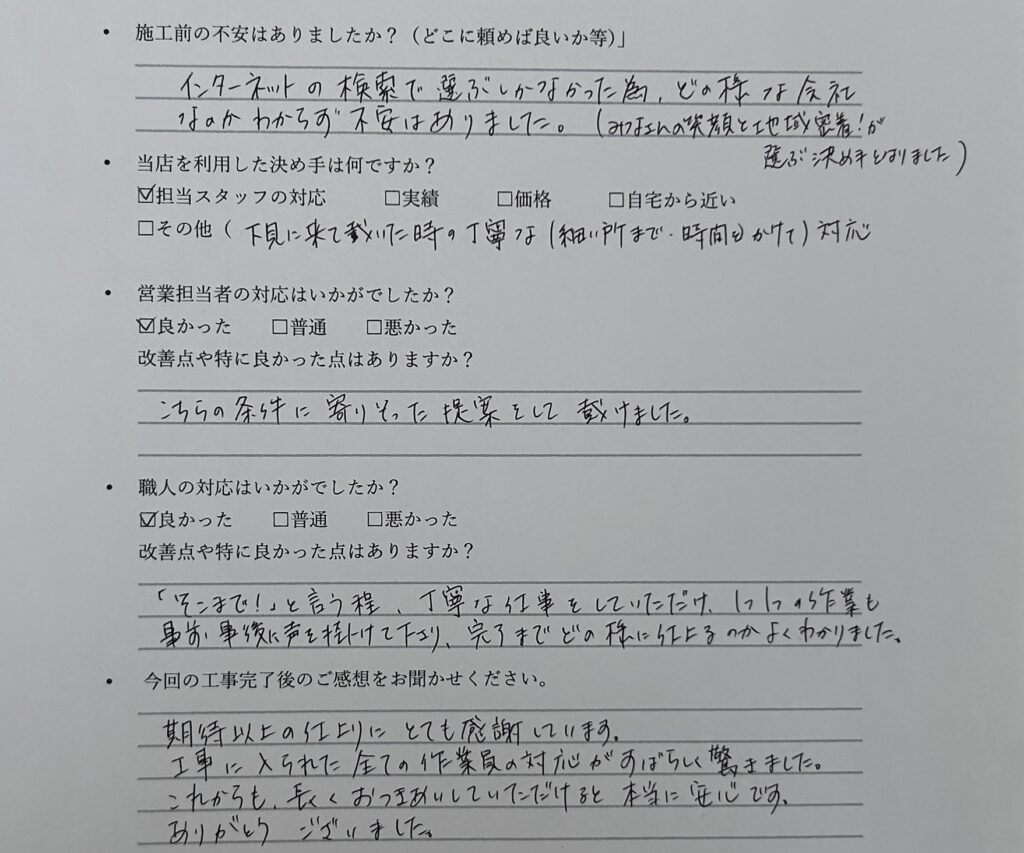 • 施工前の不安はありましたか？（どこに頼めば良いか等）」
インターネットの検索で選ぶしかなかった為、どの様な会社
なのかわからず不安はありました。（みなさんの笑顔と地域密着！が
選ぶ決め手となりました）
• 当店を利用した決め手は何ですか？
☑担当スタッフの対応 □実績 □価格 □自宅から近い
□その他（下見に来て戴いた時の丁寧な（細い所まで・時間をかけて）対応
• 営業担当者の対応はいかがでしたか？
☑良かった □普通 □悪かった
改善点や特に良かった点はありますか？
こちらの条件に寄りそった提案をして戴けました。
• 職人の対応はいかがでしたか？
☑良かった □普通 □悪かった
改善点や特に良かった点はありますか？
「そこまで！」と言う程、丁寧な仕事をしていただけ、1つ1つの作業も
事前・事後に声を掛けて下さり、完了までどの様に仕上るのかよくわかりました。
• 今回の工事完了後のご感想をお聞かせください。
期待以上の仕上りにとても感謝しています。
工事に入られた全ての作業員の対応がすばらしく驚きました。
これからも、長くおつきあいしていただけると本当に安心です。
ありがとうございました。